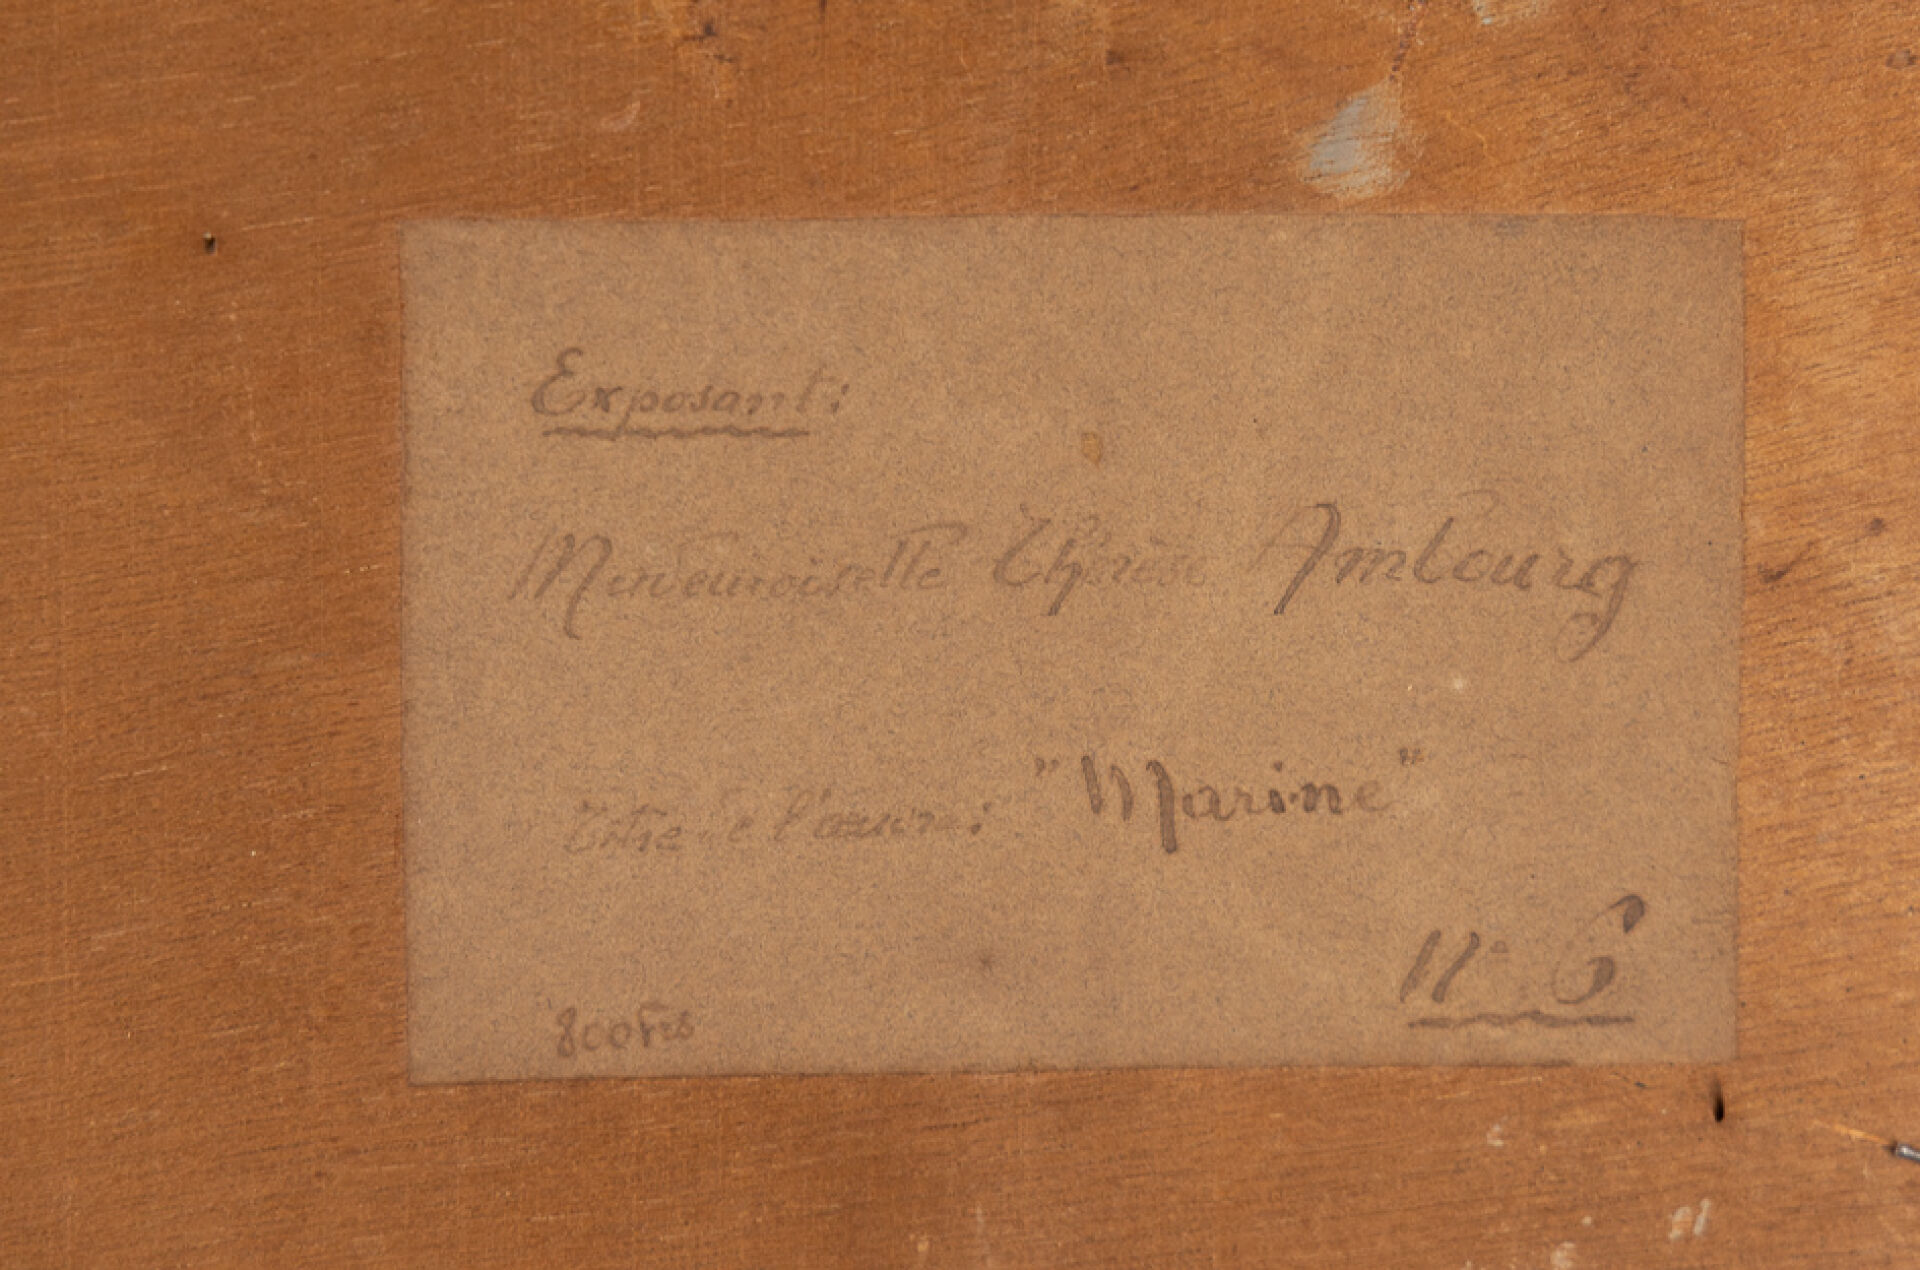 Exposant:
Mademoiselle Thérèse Ambourg
Titre de l'œuvre: "Marine"
N° 6
800 frs